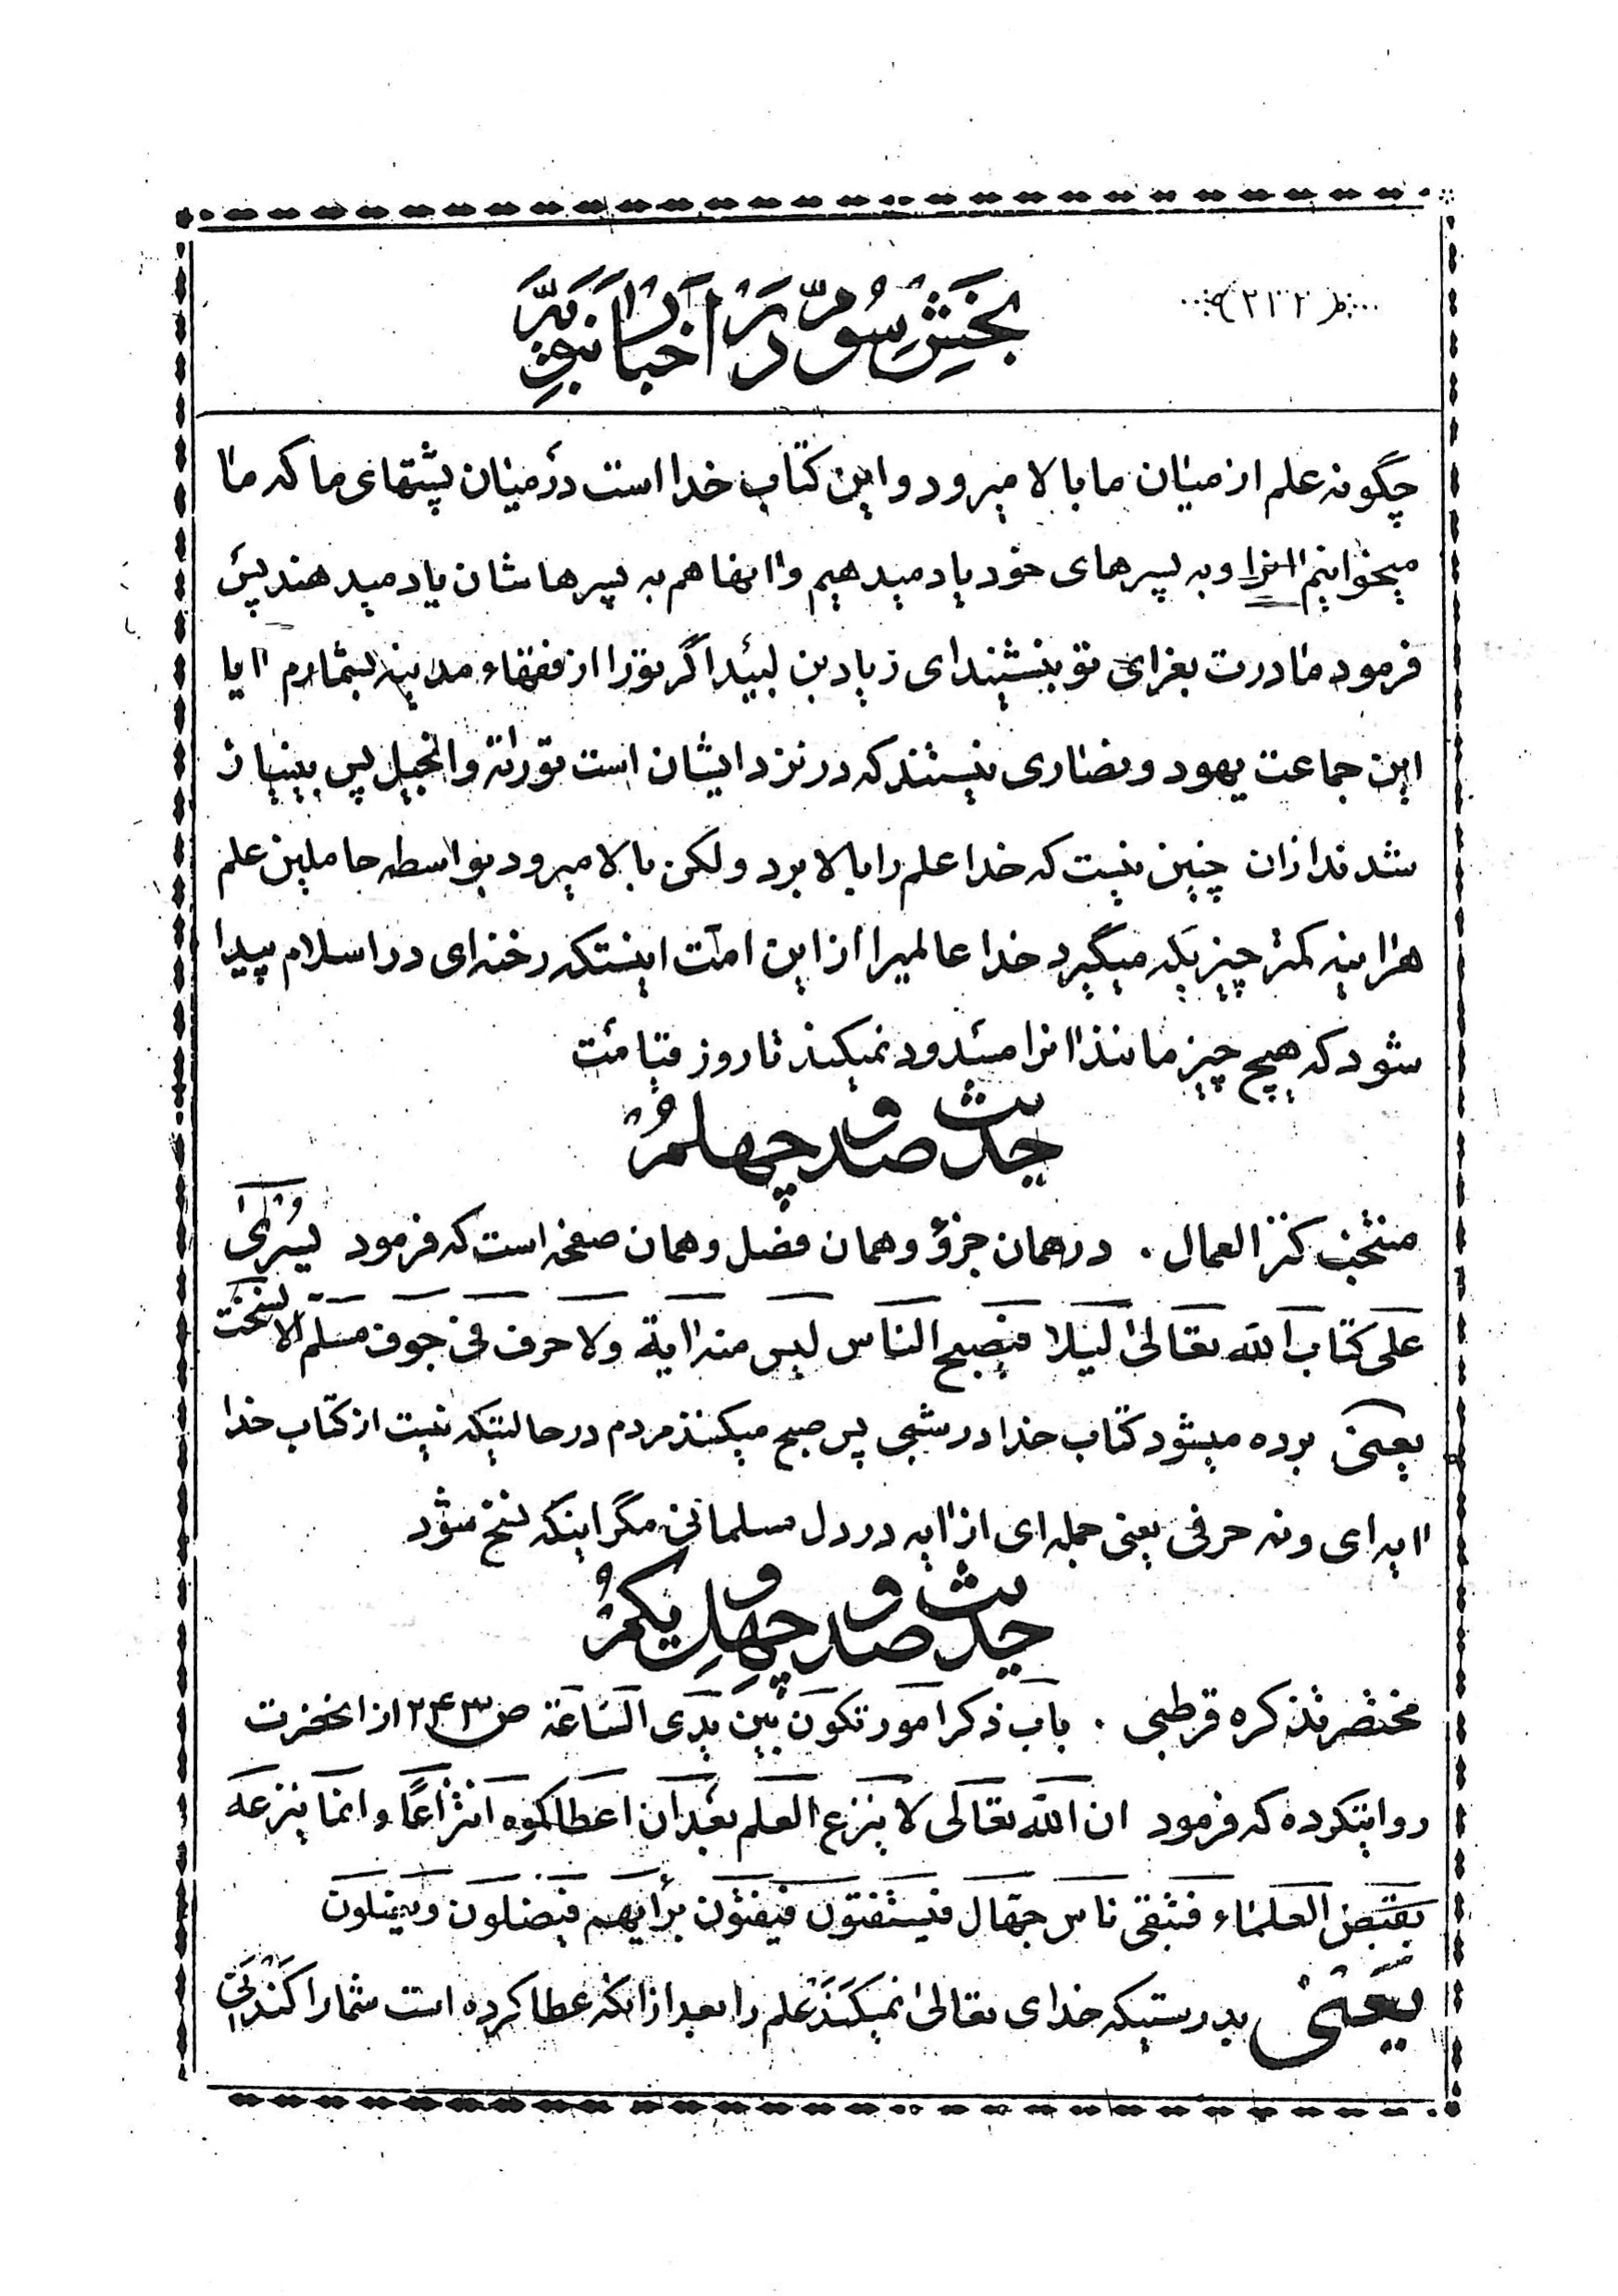 ۲۱۲
بخش سوم در اخبار نبویه
چگونه علم از میان ما بالا میرود و این کتاب خدا است در میان پشتهای ما که ما
میخوانیم انرا و به پسرهای خود یاد میدهیم و انها هم به پسرهاشان یاد میدهند پس
فرمود مادرت بعزای تو بنشیند ای زیاد بن لبید اگر تورا از فقهاء مدینه بشمارم ایا
این جماعت یهود و نصاری نیستند که در نزد ایشان است توراة و انجیل پس بینیاز
شدند ازان چنین نیست که خدا علم را بالا برد ولکن بالا میرود بواسطه حاملین علم
هراینه کمتر چیزیکه میگیرد خدا عالمیرا از این امت اینستکه رخنه‌ای در اسلام پیدا
شود که هیچ چیز مانند انرا مسدود نمیکند تا روز قیامت
حدیث صد و چهلم
منتخب کنز العمال . در همان جزؤ و همان فصل و همان صفحه است که فرمود یُسْرٰی
علی کتاب الله تعالیٰ لیلا فیصبح الناس لیس منه ایة ولا حرف فی جوف مسلم الا نسخت
یعنی برده میشود کتاب خدا در شبی پس صبح میکنند مردم در حالتیکه نیست از کتاب خدا
ایه ای و نه حرفی یعنی جمله ای از ایه در دل مسلمانی مگر اینکه نسخ شود
حدیث صد و چهل و یکم
مختصر تذکره قرطبی . باب ذکر امور تکون بین یدی الساعة ص ۲۴۳ از انحضرت
روایتکرده که فرمود ان الله تعالی لا ینزع العلم بعد ان اعطاکموه انتزاعًا و انما ینزعه
بقبض العلماء فتبقی ناس جهال فیستفتون فیفتون برأیهم فیضلون و یضلون
یعنی بدرستیکه خدای تعالیٰ نمیکند علم را بعد از انکه عطا کرده است شما را کندنی